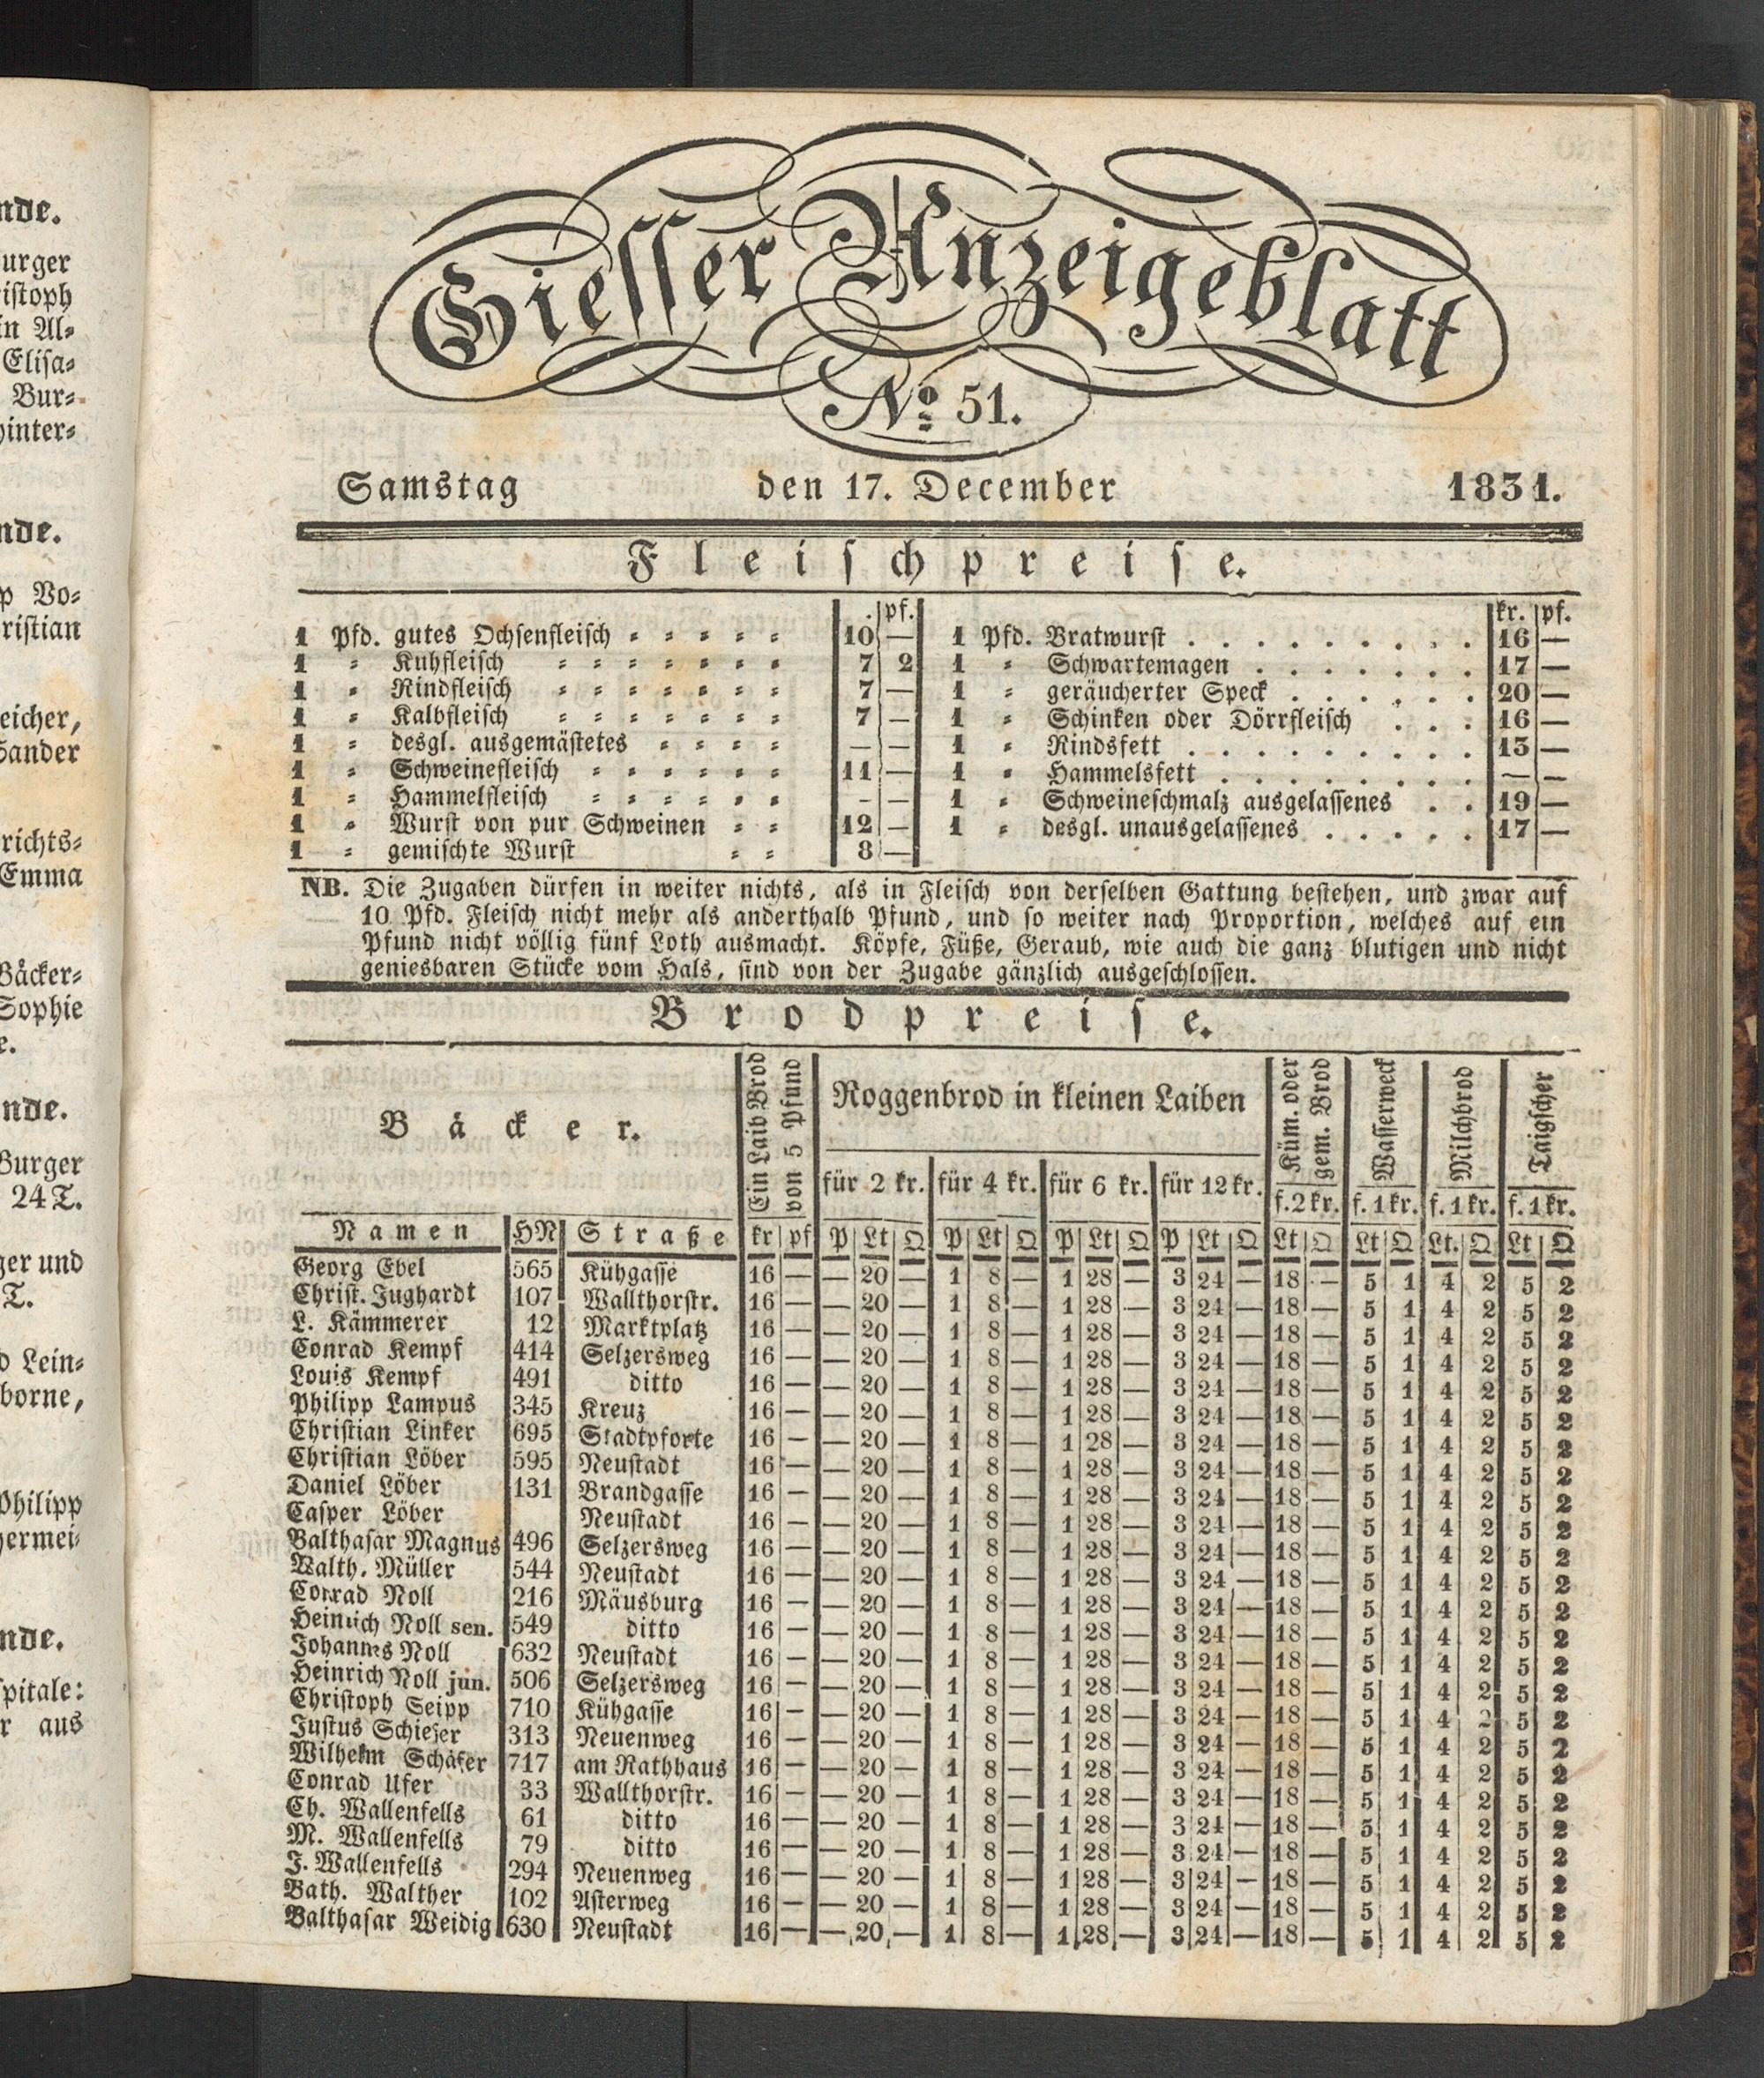 nde.
urger
istoph
in Al⸗
Elisa⸗
Bur⸗
hinter⸗
nde.
p Vo⸗
ristian
eicher,
Sander
richts⸗
Emma
Bäcker⸗
Sophie
e.
nde.
Burger
24 T.
ger und
T.
d Lein⸗
borne,
Philipp
hermei⸗
nde.
pitale:
r aus
Giesser Anzeigeblatt
No 51.
Samstag den 17. December 1831.
Fleischpreise.
. pf. kr. pf.
1 Pfd. gutes Ochsenfleisch ⸗ ⸗ ⸗ ⸗ ⸗ 10 — 1 Pfd. Bratwurst . . . . . . . . . 16 —
1 ⸗ Kuhfleisch ⸗ ⸗ ⸗ ⸗ ⸗ ⸗ ⸗ 7 2 1 ⸗ Schwartemagen . . . . . . . 17 —
1 ⸗ Rindfleisch ⸗ ⸗ ⸗ ⸗ ⸗ ⸗ ⸗ 7 — 1 ⸗ geräucherter Speck . . . . . . 20 —
1 ⸗ Kalbfleisch ⸗ ⸗ ⸗ ⸗ ⸗ ⸗ ⸗ 7 — 1 ⸗ Schinken oder Dörrfleisch . . . 16 —
1 ⸗ desgl. ausgemästetes ⸗ ⸗ ⸗ ⸗ — — 1 ⸗ Rindsfett . . . . . . . . . 15 —
1 ⸗ Schweinefleisch ⸗ ⸗ ⸗ ⸗ ⸗ ⸗ 11 — 1 ⸗ Hammelsfett . . . . . . . . — —
1 ⸗ Hammelfleisch ⸗ ⸗ ⸗ ⸗ ⸗ ⸗ — — 1 ⸗ Schweineschmalz ausgelassenes . . 19 —
1 ⸗ Wurst von pur Schweinen ⸗ ⸗ 12 — 1 ⸗ desgl. unausgelassenes . . . . . 17 —
1 ⸗ gemischte Wurst ⸗ ⸗ 8 —
NB. Die Zugaben dürfen in weiter nichts, als in Fleisch von derselben Gattung bestehen, und zwar auf
10 Pfd. Fleisch nicht mehr als anderthalb Pfund, und so weiter nach Proportion, welches auf ein
Pfund nicht völlig fünf Loth ausmacht. Köpfe, Füße, Geraub, wie auch die ganz blutigen und nicht
geniesbaren Stücke vom Hals, sind von der Zugabe gänzlich ausgeschlossen.
Brodpreise.
Bäcker.
Ein Laib Brod
von 5 Pfund
Roggenbrod in kleinen Laiben
Küm. oder
gem. Brod
Wasserweck
Milchbrod
Taigscher
für 2 kr. für 4 kr. für 6 kr. für 12 kr. f. 2 kr. f. 1 kr. f. 1 kr. f. 1 kr.
Namen HN Straße kr pf P Lt Q P Lt Q P Lt Q P Lt Q Lt Q Lt Q Lt. Q Lt Q
Georg Ebel 565 Kühgasse 16 — — 20 — 1 8 — 1 28 — 3 24 — 18 — 5 1 4 2 5 2
Christ. Jughardt 107 Wallthorstr. 16 — — 20 — 1 8 — 1 28 — 3 24 — 18 — 5 1 4 2 5 2
L. Kämmerer 12 Marktplatz 16 — — 20 — 1 8 — 1 28 — 3 24 — 18 — 5 1 4 2 5 2
Conrad Kempf 414 Selzersweg 16 — — 20 — 1 8 — 1 28 — 3 24 — 18 — 5 1 4 2 5 2
Louis Kempf 491 ditto 16 — — 20 — 1 8 — 1 28 — 3 24 — 18 — 5 1 4 2 5 2
Philipp Lampus 345 Kreuz 16 — — 20 — 1 8 — 1 28 — 3 24 — 18 — 5 1 4 2 5 2
Christian Linker 695 Stadtpforte 16 — — 20 — 1 8 — 1 28 — 3 24 — 18 — 5 1 4 2 5 2
Christian Löber 595 Neustadt 16 — — 20 — 1 8 — 1 28 — 3 24 — 18 — 5 1 4 2 5 2
Daniel Löber 131 Brandgasse 16 — — 20 — 1 8 — 1 28 — 3 24 — 18 — 5 1 4 2 5 2
Casper Löber Neustadt 16 — — 20 — 1 8 — 1 28 — 3 24 — 18 — 5 1 4 2 5 2
Balthasar Magnus 496 Selzersweg 16 — — 20 — 1 8 — 1 28 — 3 24 — 18 — 5 1 4 2 5 2
Walth. Müller 544 Neustadt 16 — — 20 — 1 8 — 1 28 — 3 24 — 18 — 5 1 4 2 5 2
Conrad Noll 216 Mäusburg 16 — — 20 — 1 8 — 1 28 — 3 24 — 18 — 5 1 4 2 5 2
Heinrich Noll sen. 549 ditto 16 — — 20 — 1 8 — 1 28 — 3 24 — 18 — 5 1 4 2 5 2
Johannes Noll 632 Neustadt 16 — — 20 — 1 8 — 1 28 — 3 24 — 18 — 5 1 4 2 5 2
Heinrich Noll jun. 506 Selzersweg 16 — — 20 — 1 8 — 1 28 — 3 24 — 18 — 5 1 4 2 5 2
Christoph Seipp 710 Kühgasse 16 — — 20 — 1 8 — 1 28 — 3 24 — 18 — 5 1 4 2 5 2
Justus Schieser 313 Neuenweg 16 — — 20 — 1 8 — 1 28 — 3 24 — 18 — 5 1 4 2 5 2
Wilhelm Schäfer 717 am Rathhaus 16 — — 20 — 1 8 — 1 28 — 3 24 — 18 — 5 1 4 2 5 2
Conrad Ufer 33 Wallthorstr. 16 — — 20 — 1 8 — 1 28 — 3 24 — 18 — 5 1 4 2 5 2
Ch. Wallenfells 61 ditto 16 — — 20 — 1 8 — 1 28 — 3 24 — 18 — 5 1 4 2 5 2
M. Wallenfells 79 ditto 16 — — 20 — 1 8 — 1 28 — 3 24 — 18 — 5 1 4 2 5 2
J. Wallenfells 294 Neuenweg 16 — — 20 — 1 8 — 1 28 — 3 24 — 18 — 5 1 4 2 5 2
Bath. Walther 102 Asterweg 16 — — 20 — 1 8 — 1 28 — 3 24 — 18 — 5 1 4 2 5 2
Balthasar Weidig 630 Neustadt 16 — — 20 — 1 8 — 1 28 — 3 24 — 18 — 5 1 4 2 5 2